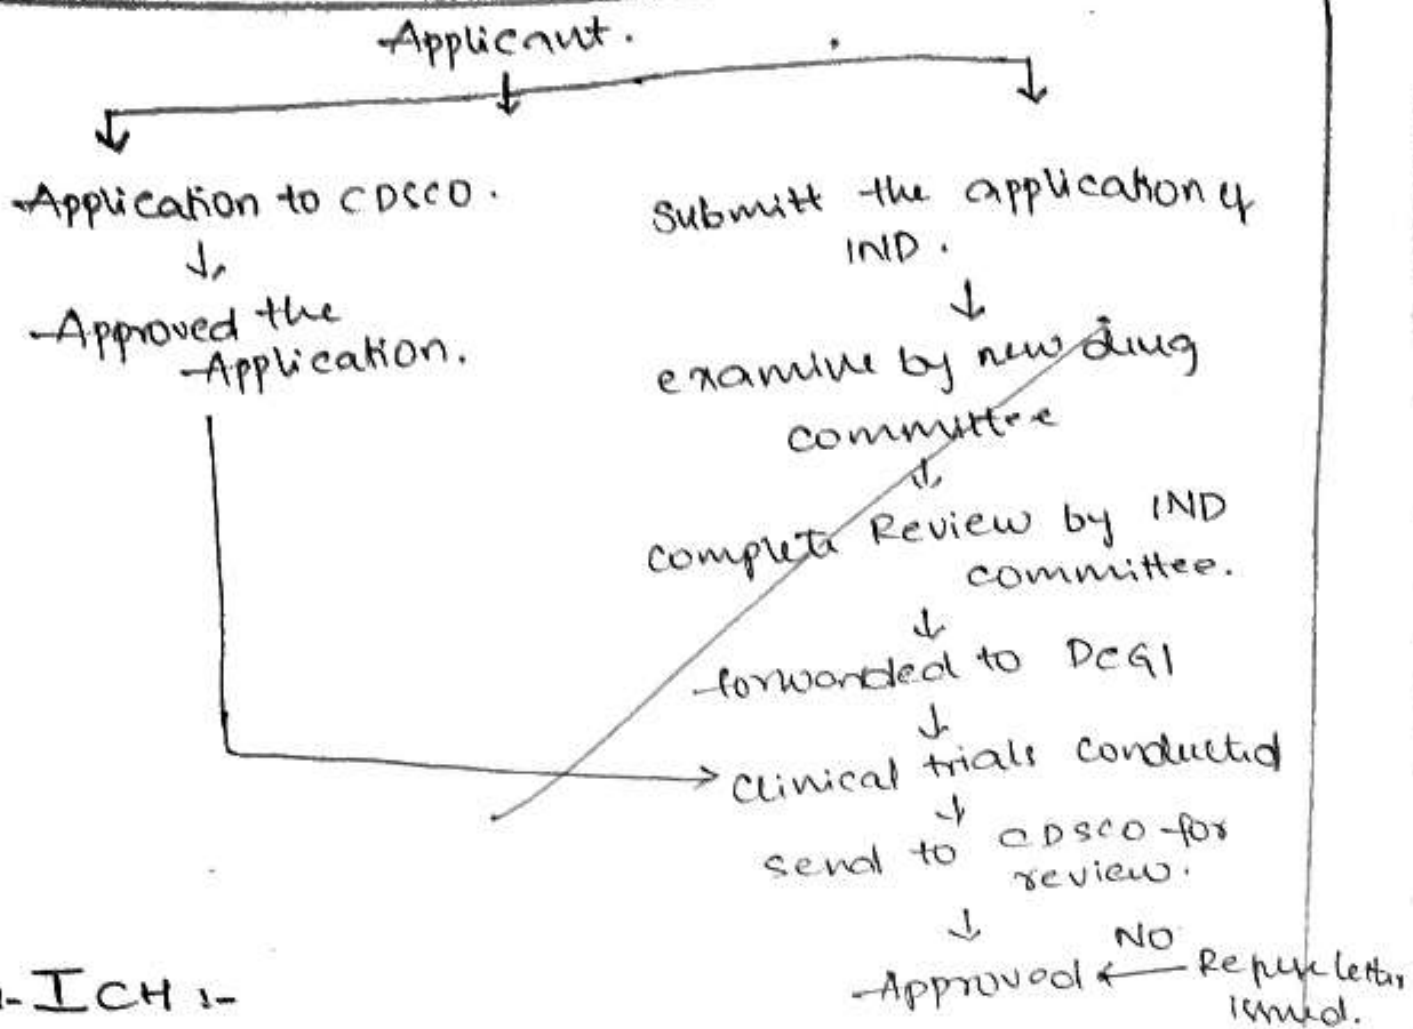 Applicant.
Application to CDSCO.
Approved the
Application.
Submitt the application of
IND.
examine by new drug
committee
complete Review by IND
committee.
forwarded to DCGI
clinical trials conducted
send to CDSCO for
review.
Approved
NO
letter
issued.
ICH :-